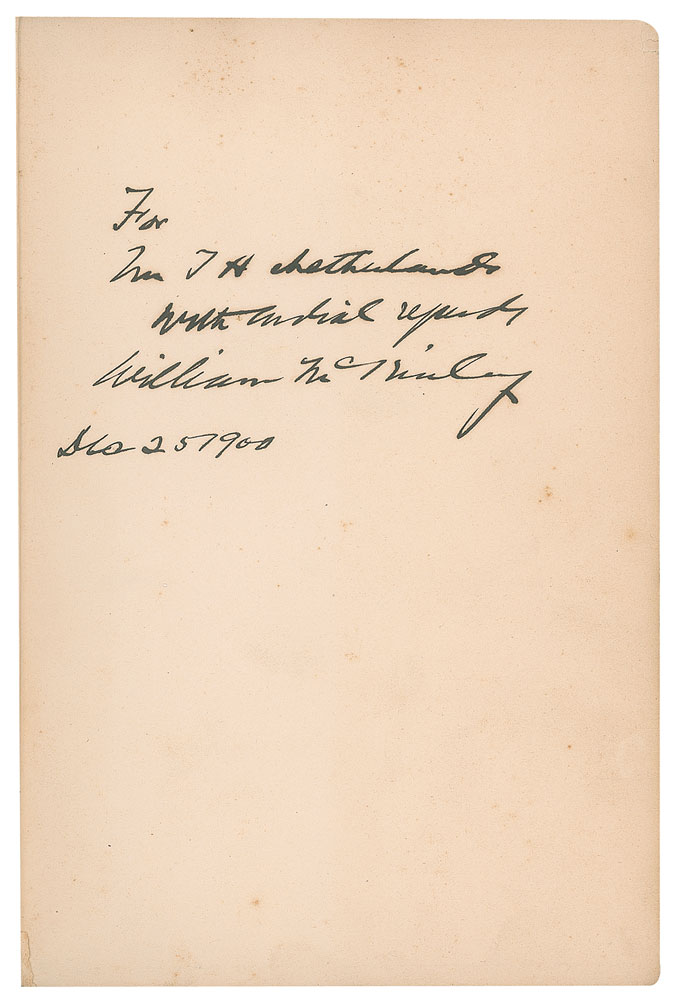 For
Mr T H Netherlands
With cordial regards
William McKinley
Dec 25 1900